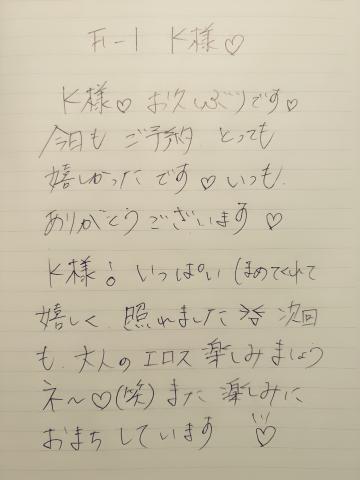 K様♡
K様♡ お久しぶりです♡
今日も ご予約 とっても
嬉しかったです♡いつも
ありがとうございます♡
K様! いっぱい ほめてくれて
嬉しく 照れました 次回
も 大人のエロス 楽しみましょう
ネ〜♡(笑) また 楽しみに
おまちしています ♡